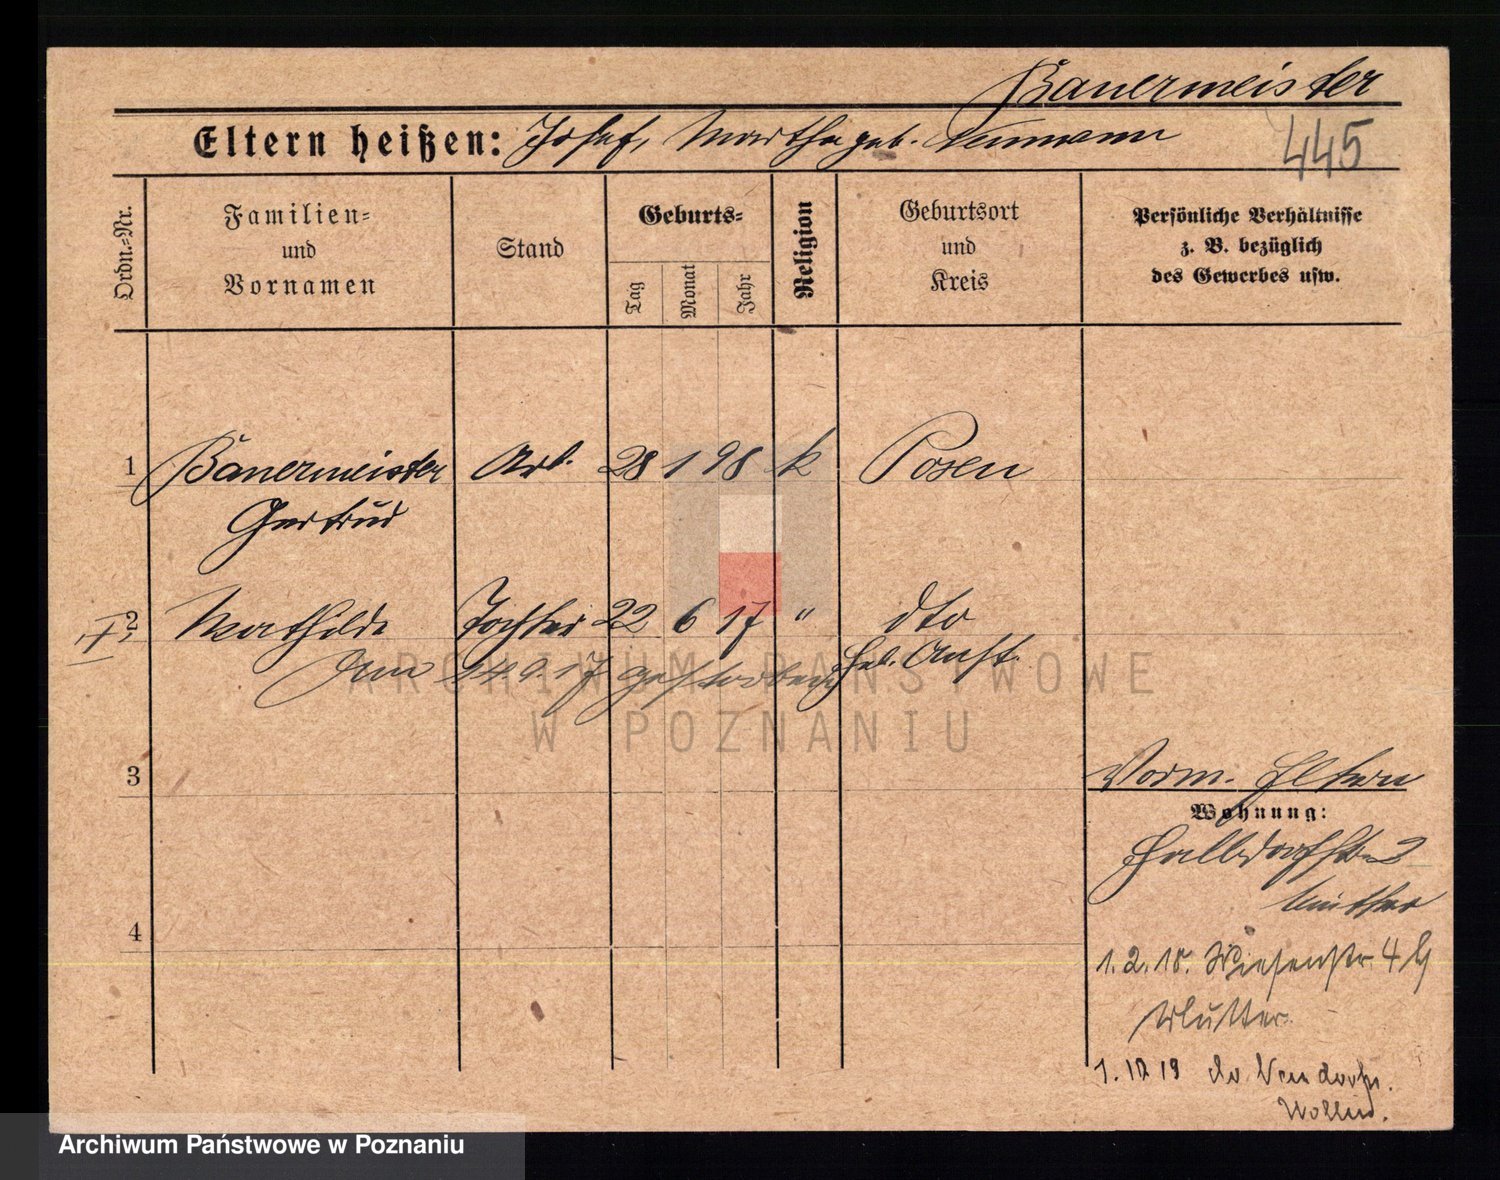 Bauermeister
Eltern heißen: Josef, Martha geb. Neumann
445
Ordn.-Nr.
Familien-
und
Vornamen
Stand
Geburts-
Tag
Monat
Jahr
Religion
Geburtsort
und
Kreis
Persönliche Verhältnisse
z. B. bezüglich
des Gewerbes usw.
1 Bauermeister Arb. 28 1 98 k Posen
Gertrud
2 Mathilde Tochter 22 6 17 " dto
Am 14.9.17 gestorben Heb. Anst.
ARCHIWUM PAŃSTWOWE
W POZNANIU
3
Vorm. Eltern
Wohnung:
2
Mutter
4
1.2.18. Wiesenstr 4
Mutter
1.12 19
Archiwum Państwowe w Poznaniu